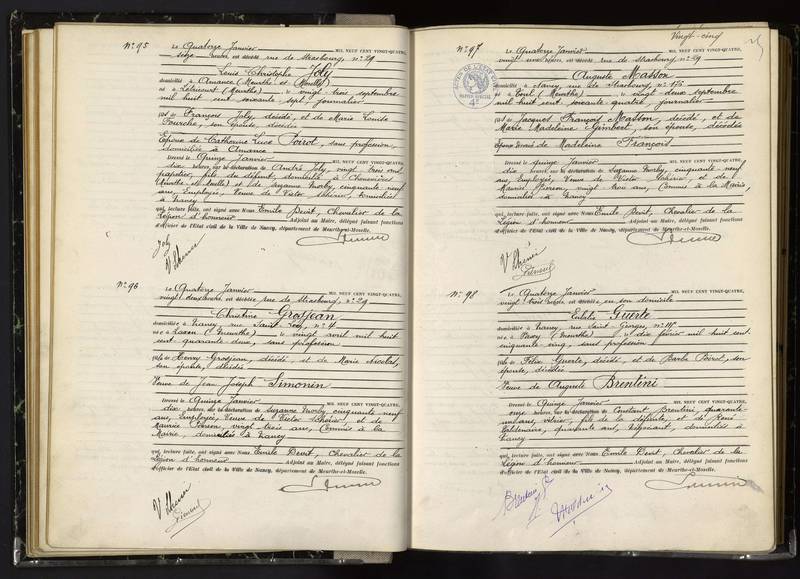 N° 95
Le Quatorze Janvier MIL NEUF CENT VINGT-QUATRE,
seize heures, est décédé rue de Strasbourg, n° 29
Louis Christophe Joly
domicilié à Amance (Meurthe et Moselle)
né à Létricourt (Meurthe) le vingt trois septembre
mil huit cent soixante sept, journalier
fils de François Joly, décédé, et de Marie Louise
son épouse, décédée
Epoux de Catherine Luce Poirot, sans profession,
domiciliée à Amance
Dressé le Quinze Janvier MIL NEUF CENT VINGT-QUATRE,
dix heures, sur la déclaration de André Joly, vingt trois ans
papetier, fils du défunt, domicilié à
Meurthe et Moselle) et de Suzanne cinquante neuf
ans, Employée, Veuve de Victor domiciliés
à Nancy
qui, lecture faite, ont signé avec Nous Emile Devit, Chevalier de la
Légion d'honneur Adjoint au Maire, délégué faisant fonctions
d'Officier de l'Etat civil de la Ville de Nancy, département de Meurthe-et-Moselle.
Joly
N° 96
Le Quatorze Janvier MIL NEUF CENT VINGT-QUATRE,
vingt deux heures, est décédée rue de Strasbourg, n° 29
Christine Grosjean
domiciliée à Nancy, rue Saint n° 4
née à Laxou (Meurthe) le vingt avril mil huit
cent quarante deux, sans profession
fille de Henry Grosjean, décédé et de Marie Nicolas,
son épouse, décédée
Veuve de Jean Joseph Simonin
Dressé le Quinze Janvier MIL NEUF CENT VINGT-QUATRE,
dix heures, sur la déclaration de Suzanne cinquante neuf
ans, Employée, Veuve de Victor et de
Maurice vingt trois ans, Commis à la
Mairie, domiciliés à Nancy
qui, lecture faite, ont signé avec Nous Emile Devit, Chevalier de la
Légion d'honneur Adjoint au Maire, délégué faisant fonctions
d'Officier de l'Etat civil de la Ville de Nancy, département de Meurthe-et-Moselle.
Vingt-cinq
25
N° 97
Le Quatorze Janvier MIL NEUF CENT VINGT-QUATRE,
vingt heures, est décédé rue de Strasbourg n° 29
Auguste Masson
domicilié à Nancy, rue de Strasbourg, n°
né à Toul (Meurthe) le vingt deux septembre
mil huit cent soixante quatre, journalier
fils de Jacques François Masson, décédé, et de
Marie Madeleine Gimbert, son épouse, décédée
Epoux de Madeleine François
Dressé le quinze Janvier MIL NEUF CENT VINGT-QUATRE,
dix heures, sur la déclaration de Suzanne cinquante neuf
ans, Employée, Veuve de Victor et de
Maurice vingt trois ans, Commis à la Mairie,
domiciliés à Nancy
qui, lecture faite, ont signé avec Nous Emile Devit, Chevalier de la
Légion d'honneur Adjoint au Maire, délégué faisant fonctions
d'Officier de l'Etat civil de la Ville de Nancy, département de Meurthe-et-Moselle.
N° 98
Le Quatorze Janvier MIL NEUF CENT VINGT-QUATRE,
vingt trois heures, est décédée en son domicile
Eulalie Guerle
domiciliée à Nancy, rue Saint Georges, n°
née à (Meurthe) le dix février mil huit cent
cinquante cinq, sans profession
fille de Félix Guerle, décédé, et de Barbe Poirot, son
épouse, décédée
Veuve de Auguste Brentini
Dressé le Quinze Janvier MIL NEUF CENT VINGT-QUATRE,
onze heures, sur la déclaration de Constant Brentini, quarante
ans, vitrier, fils de la défunte, et de René
quarante ans, Négociant, domiciliés à
Nancy
qui, lecture faite, ont signé avec Nous Emile Devit, Chevalier de la
Légion d'honneur Adjoint au Maire, délégué faisant fonctions
d'Officier de l'Etat civil de la Ville de Nancy, département de Meurthe-et-Moselle.